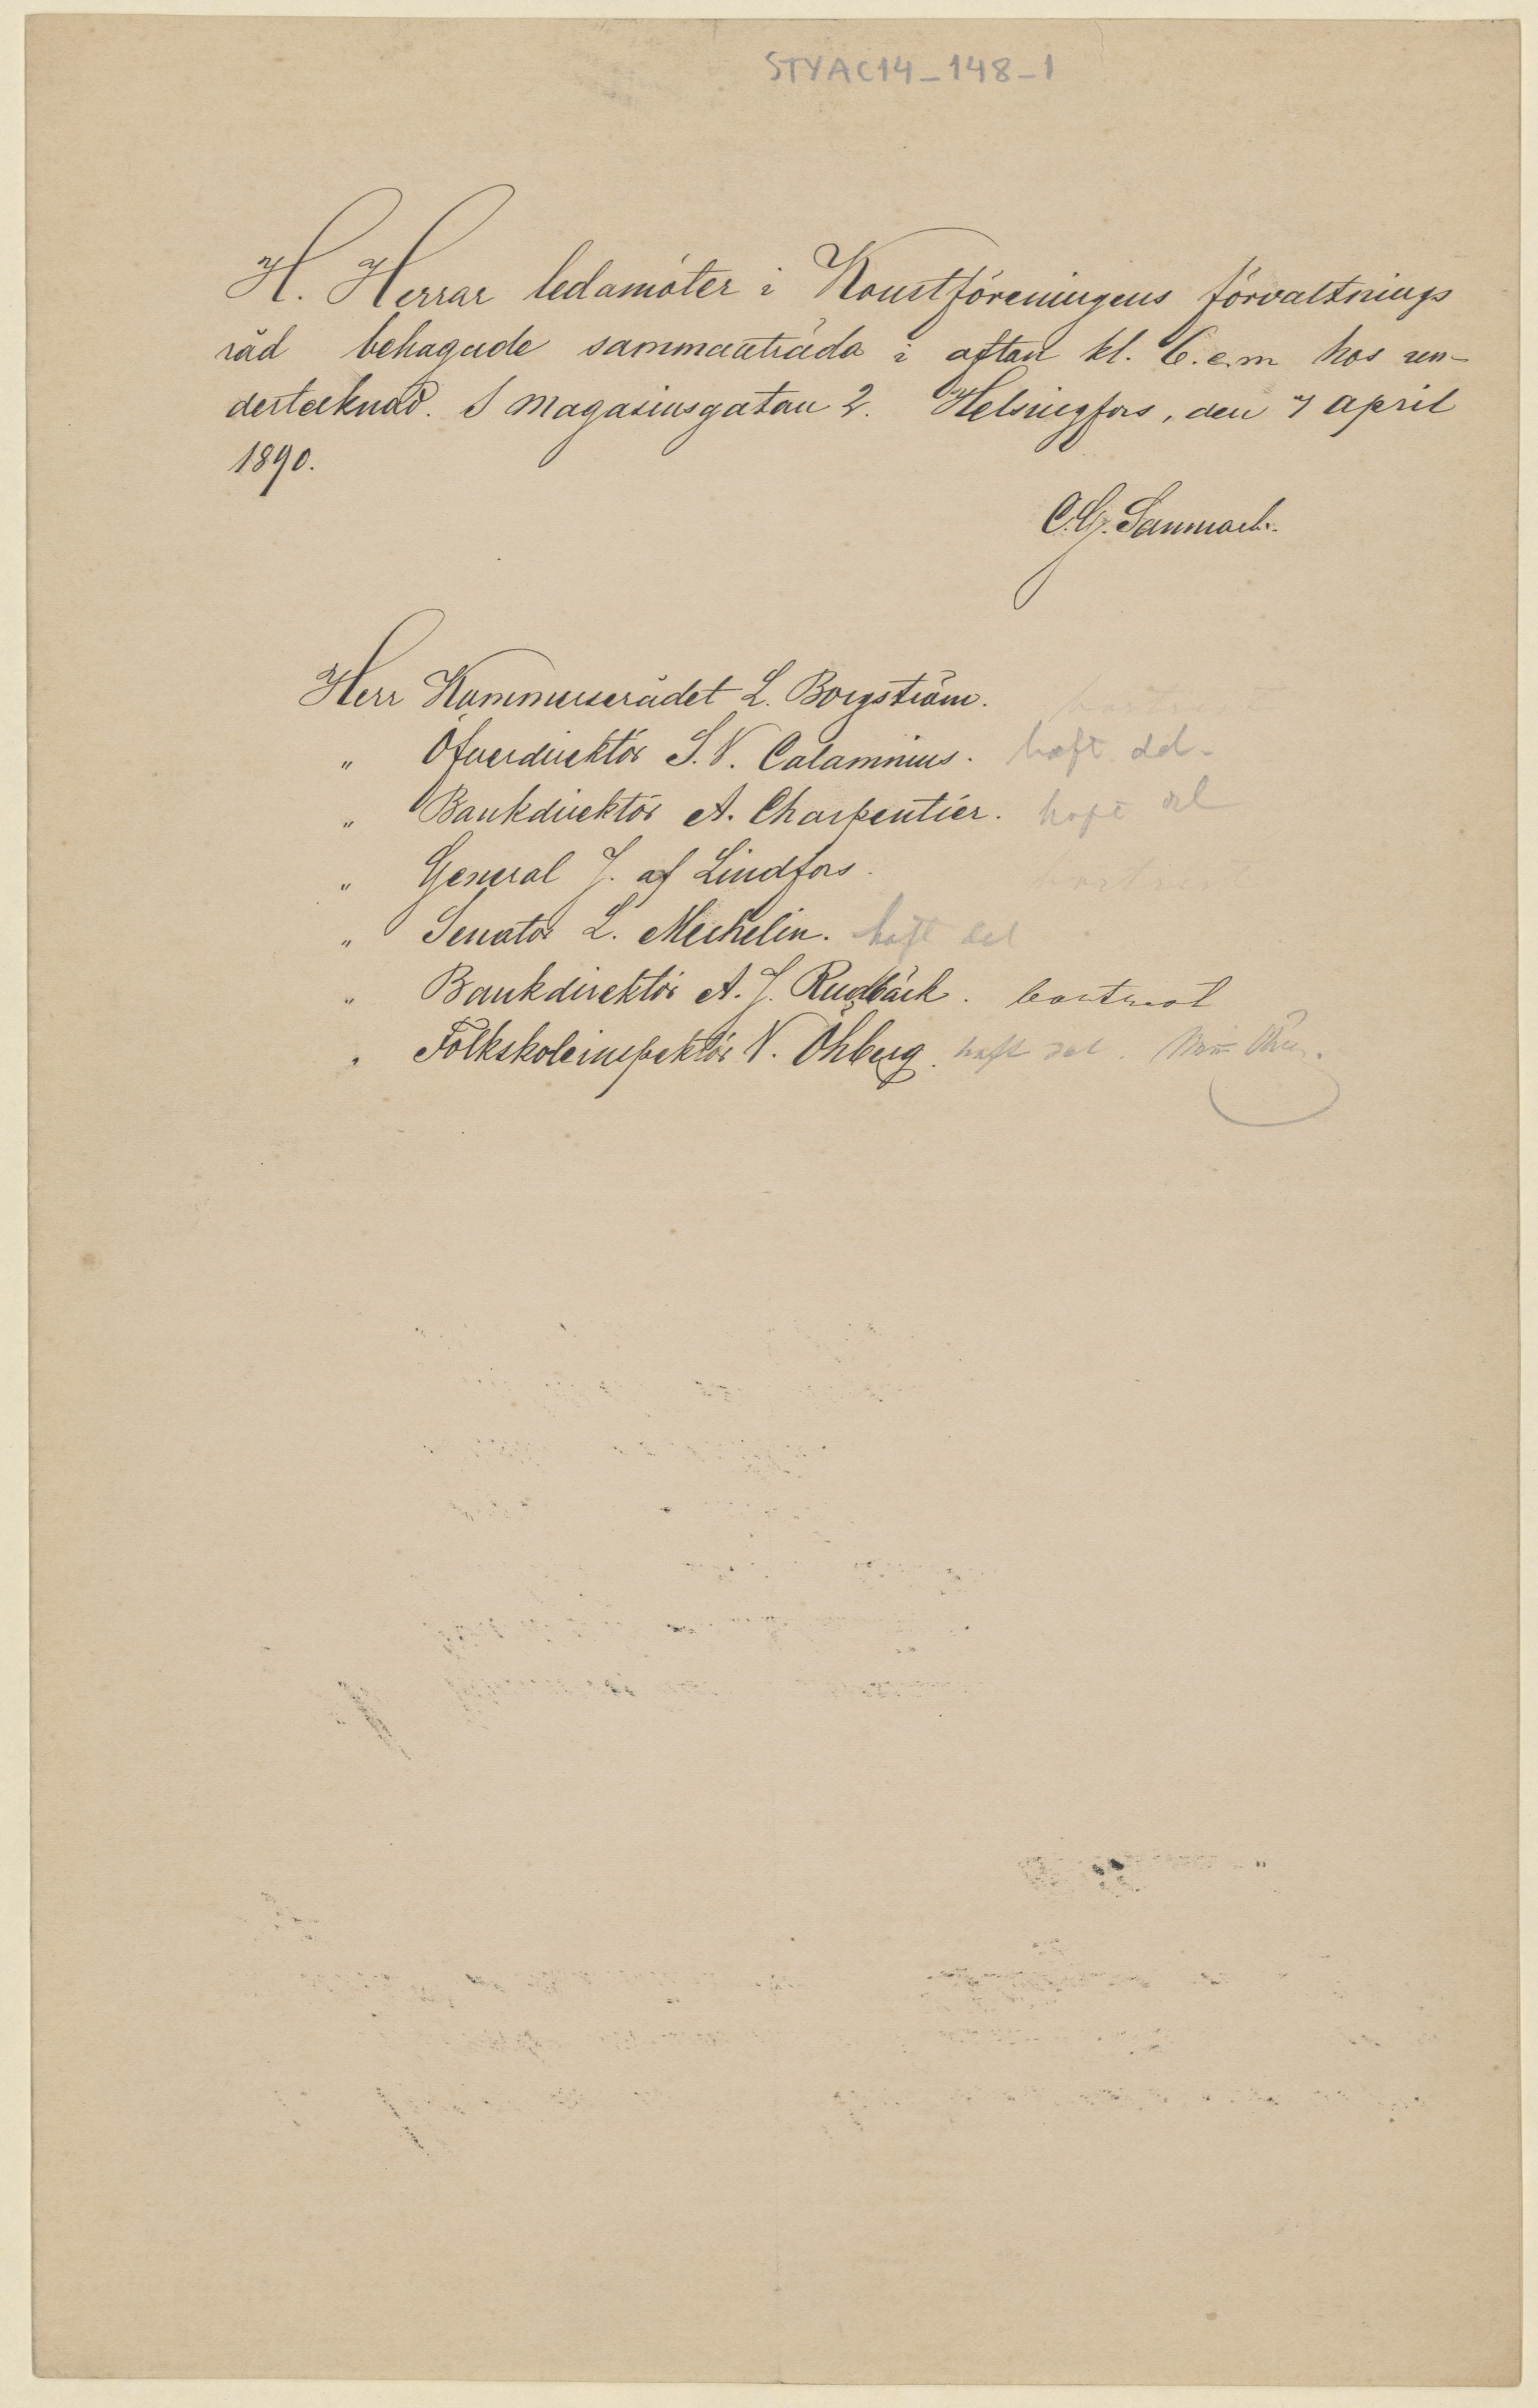 STYAC14-148-1
H. Herrar ledamöter i Konstföreningens förvaltnings
råd behagade sammanträda i aftan kl. 6. e.m hos un-
dertecknad. S Magasinsgatan 2. Helsingfors, den 7 april
1890.
C. G. Sanmark.
Herr Kommerserådet L. Borgström. bortrest
" Öfverdirektör S. V. Calamnius. haft del-
" Bankdirektör A. Charpentier. haft del
" General J. af Lindfors. bortrest
" Senator L. Mechelin. haft del
" Bankdirektör A. J. Rudbäck. bortrest
" Folkskoleinspektör V. Öhberg. haft del.